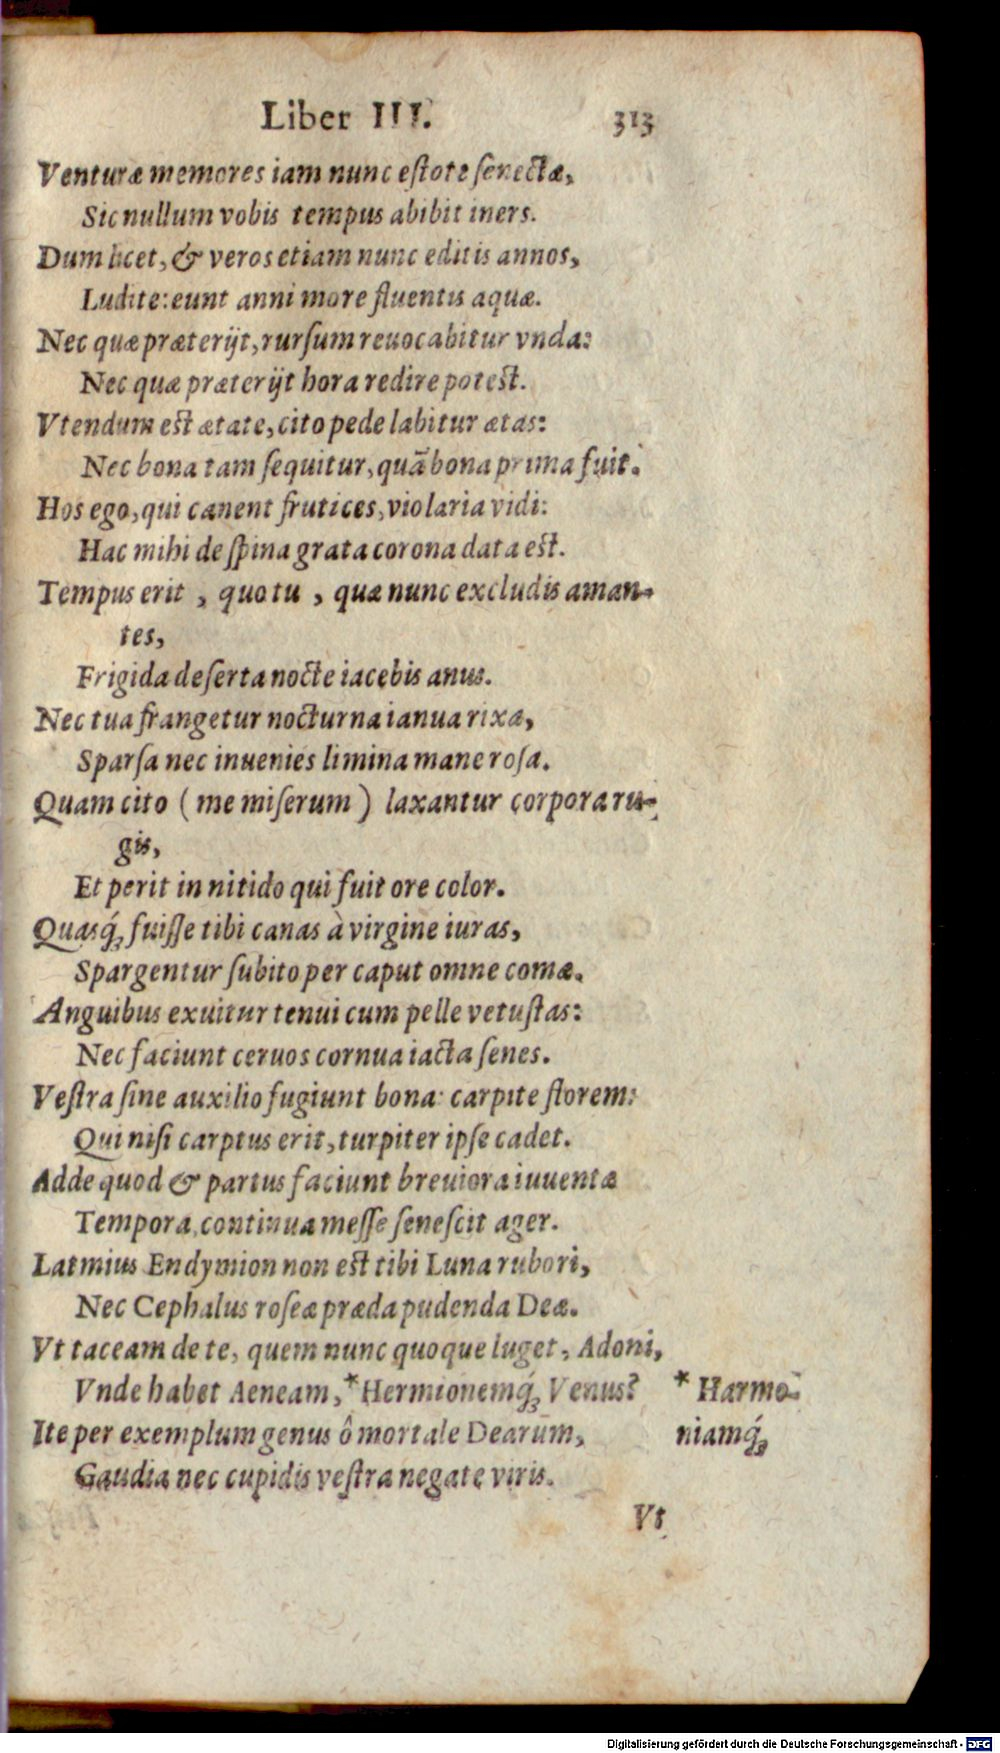 Liber III. 313
Venturæ memores iam nunc eſtote ſenectæ,
Sic nullum vobis tempus abibit iners.
Dum licet, & veros etiam nunc editis annos,
Ludite: eunt anni more fluentis aquæ.
Nec quæ præterijt, rurſum reuocabitur vnda:
Nec quæ præterijt hora redire poteſt.
Vtendum eſt ætate, cito pede labitur ætas:
Nec bona tam ſequitur, quā bona prima fuit.
Hos ego, qui canent frutices, violaria vidi:
Hac mihi de ſpina grata corona data eſt.
Tempus erit , quo tu , quæ nunc excludis aman-
tes,
Frigida deſerta nocte iacebis anus.
Nec tua frangetur nocturna ianua rixa,
Sparſa nec inuenies limina mane roſa.
Quam cito ( me miſerum ) laxantur corpora ru-
gis,
Et perit in nitido qui fuit ore color.
Quasq́; fuiſſe tibi canas à virgine iuras,
Spargentur ſubito per caput omne comæ.
Anguibus exuitur tenui cum pelle vetuſtas:
Nec faciunt ceruos cornua iacta ſenes.
Veſtra ſine auxilio fugiunt bona: carpite florem:
Qui niſi carptus erit, turpiter ipſe cadet.
Adde quod & partus faciunt breuiora iuuentæ
Tempora, continua meſſe ſeneſcit ager.
Latmius Endymion non eſt tibi Luna rubori,
Nec Cephalus roſeæ præda pudenda Deæ.
Vt taceam de te, quem nunc quoque luget, Adoni,
Vnde habet Aeneam, *Hermionemq́; Venus? * Harmo-
Ite per exemplum genus ô mortale Dearum, niamq́;
Gaudia nec cupidis veſtra negate viris.
Vt
Digitalisierung gefördert durch die Deutsche Forschungsgemeinschaft - DFG